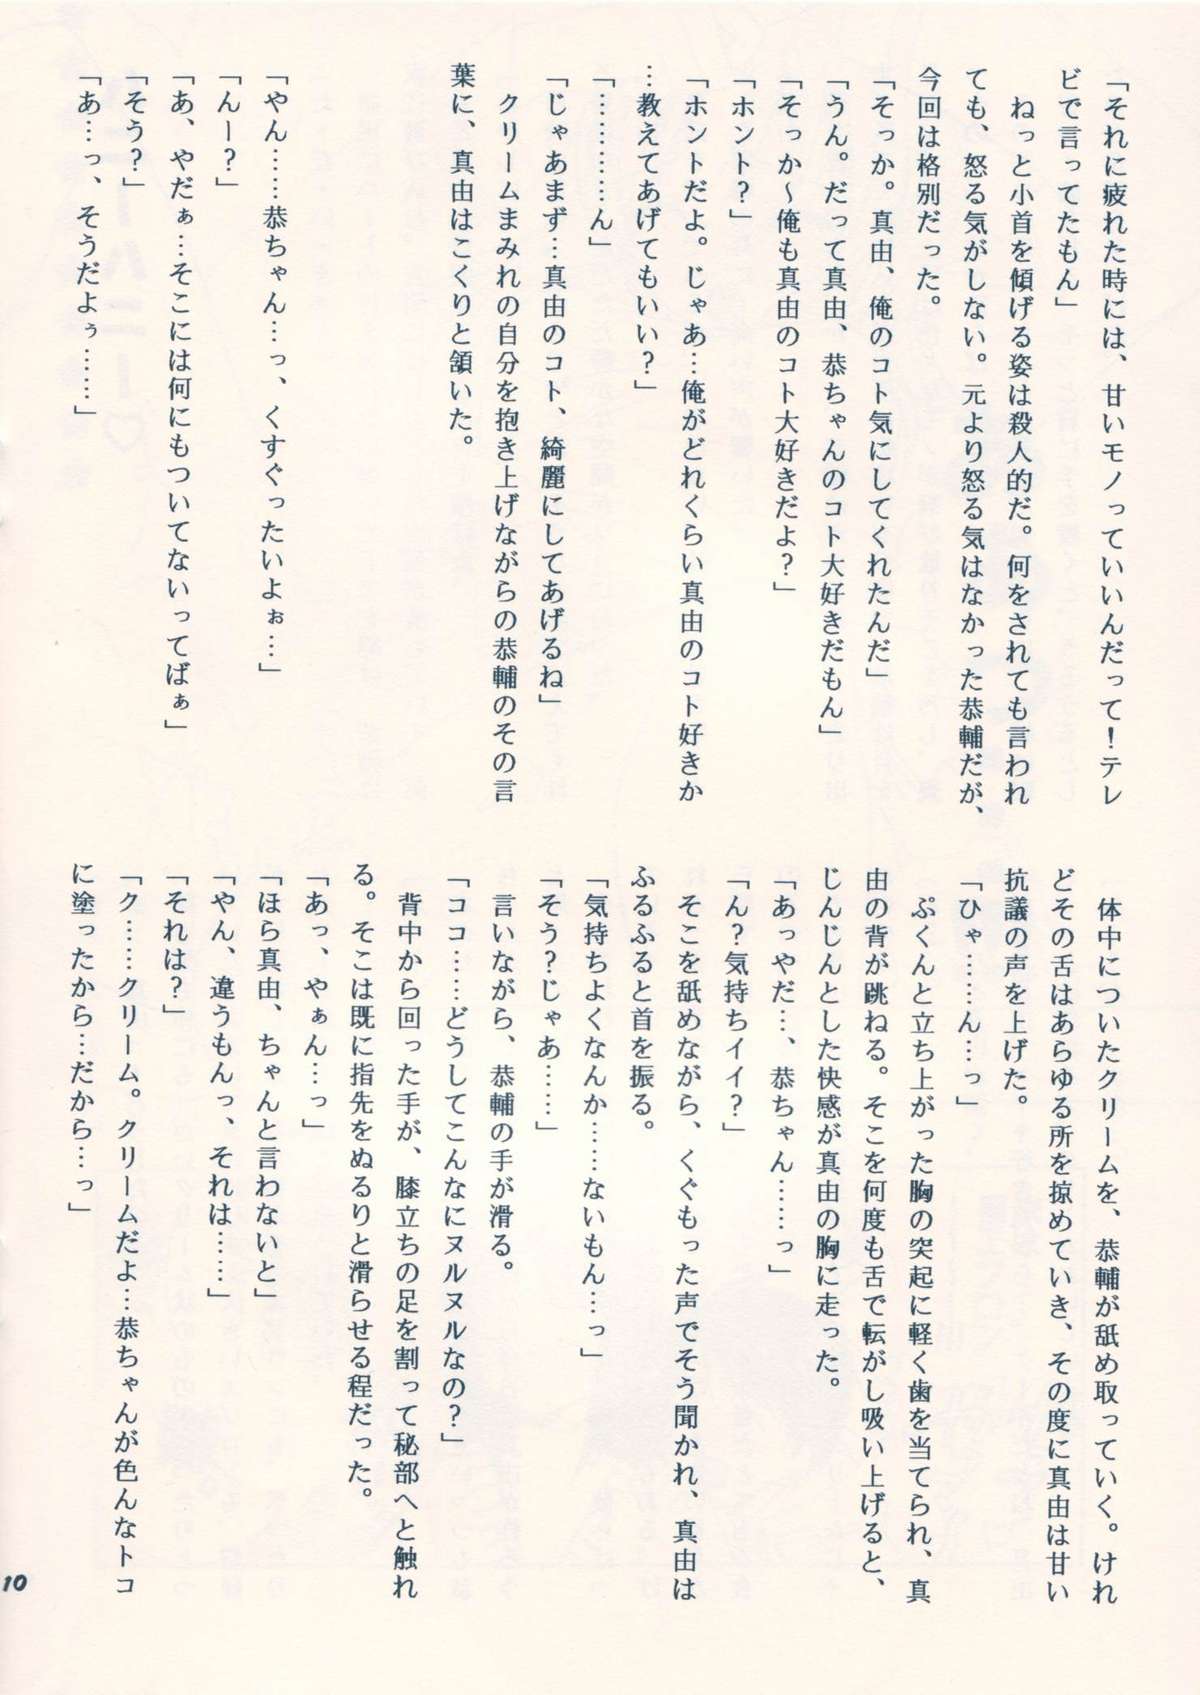 「それに疲れた時には、甘いモノっていいんだって！テレ
ビで言ってたもん」
ねっと小首を傾げる姿は殺人的だ。何をされても言われ
ても、怒る気がしない。元より怒る気はなかった恭輔だが、
今回は格別だった。
「そっか。真由、俺のコト気にしてくれたんだ」
「うん。だって真由、恭ちゃんのコト大好きだもん」
「そっか～俺も真由のコト大好きだよ？」
「ホント？」
「ホントだよ。じゃあ…俺がどれくらい真由のコト好きか
…教えてあげてもいい？」
「…………ん」
「じゃあまず…真由のコト、綺麗にしてあげるね」
クリームまみれの自分を抱き上げながらの恭輔のその言
葉に、真由はこくりと頷いた。
「やん……恭ちゃん…っ、くすぐったいよぉ…」
「んー？」
「あ、やだぁ…そこには何にもついてないってばぁ」
「そう？」
「あ…っ、そうだよぅ……」
体中についたクリームを、恭輔が舐め取っていく。けれ
どその舌はあらゆる所を掠めていき、その度に真由は甘い
抗議の声を上げた。
「ひゃ……ん…っ」
ぷくんと立ち上がった胸の突起に軽く歯を当てられ、真
由の背が跳ねる。そこを何度も舌で転がし吸い上げると、
じんじんとした快感が真由の胸に走った。
「あっやだ…、恭ちゃん……っ」
「ん？気持ちイイ？」
そこを舐めながら、くぐもった声でそう聞かれ、真由は
ふるふると首を振る。
「気持ちよくなんか……ないもん…っ」
「そう？じゃあ……」
言いながら、恭輔の手が滑る。
「ココ……どうしてこんなにヌルヌルなの？」
背中から回った手が、膝立ちの足を割って秘部へと触れ
る。そこは既に指先をぬるりと滑らせる程だった。
「あっ、やぁん…っ」
「ほら真由、ちゃんと言わないと」
「やん、違うもんっ、それは……」
「それは？」
「ク……クリーム。クリームだよ…恭ちゃんが色んなトコ
に塗ったから…だから…っ」
10